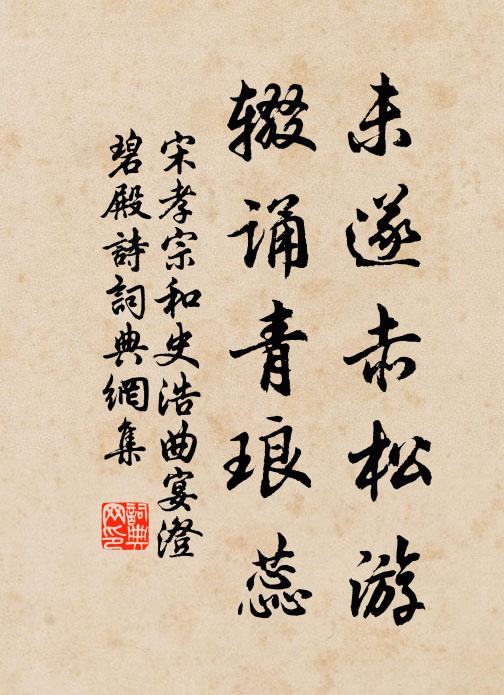 未遂赤松游
辍诵青琅蕊
宋孝宗和史浩曲宴澄
碧殿詩詞典網集
詞典网印